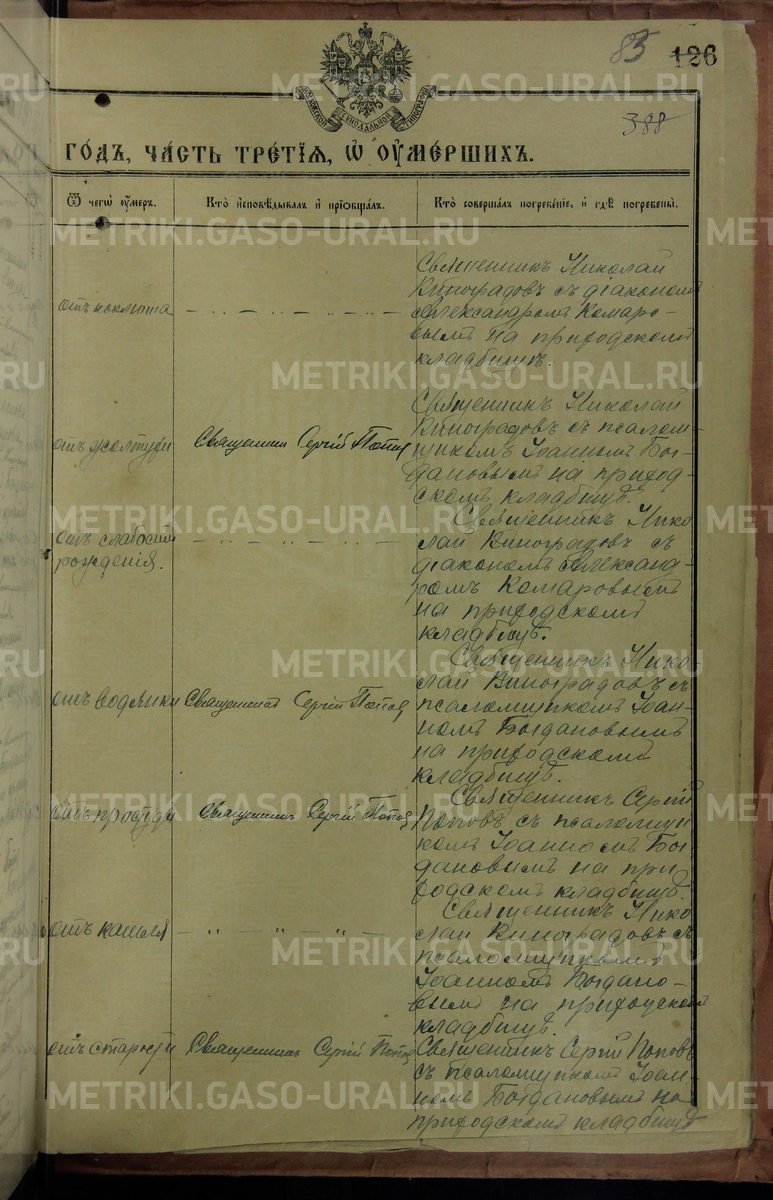 85 126
388
годъ, часть третія, о умершихъ.
Отъ чего умеръ.
Кто исповѣдывалъ и пріобщалъ.
Кто совершалъ погребеніе, и гдѣ погребены.
отъ коклюша
Священникъ Николай
Виноградовъ съ діакономъ
Александромъ Комаро-
вымъ на приходскомъ
кладбищѣ.
Священникъ Сергій Попов
Священникъ Николай
Виноградовъ съ псалом-
щикомъ Іоанномъ Бог-
дановымъ на приход-
скомъ кладбищѣ.
отъ слабости
рожденія.
Священникъ Нико
лай Виноградовъ съ
діакономъ Александ-
ромъ Комаровымъ
на приходскомъ
кладбищѣ.
отъ водянки
Священникъ Сергій Попов
Священникъ Нико
лай Виноградовъ съ
псаломщикомъ Іоан-
номъ Богдановымъ
на приходскомъ
кладбищѣ.
отъ простуды
Священникъ Сергій Попов
Священникъ Сергій
Поповъ съ псаломщи
комъ Іоанномъ Бог-
дановымъ на при
ходскомъ кладбищѣ.
отъ кашля
Священникъ Нико
лай Виноградовъ съ
псаломщикомъ
Іоанномъ Богдано-
вымъ на приходскомъ
кладбищѣ.
отъ старости
Священникъ Сергій Попов
Священникъ Сергій Поповъ
съ псаломщикомъ Іоан-
номъ Богдановымъ на
приходскомъ кладбищѣ
METRIKI.GASO-URAL.RU